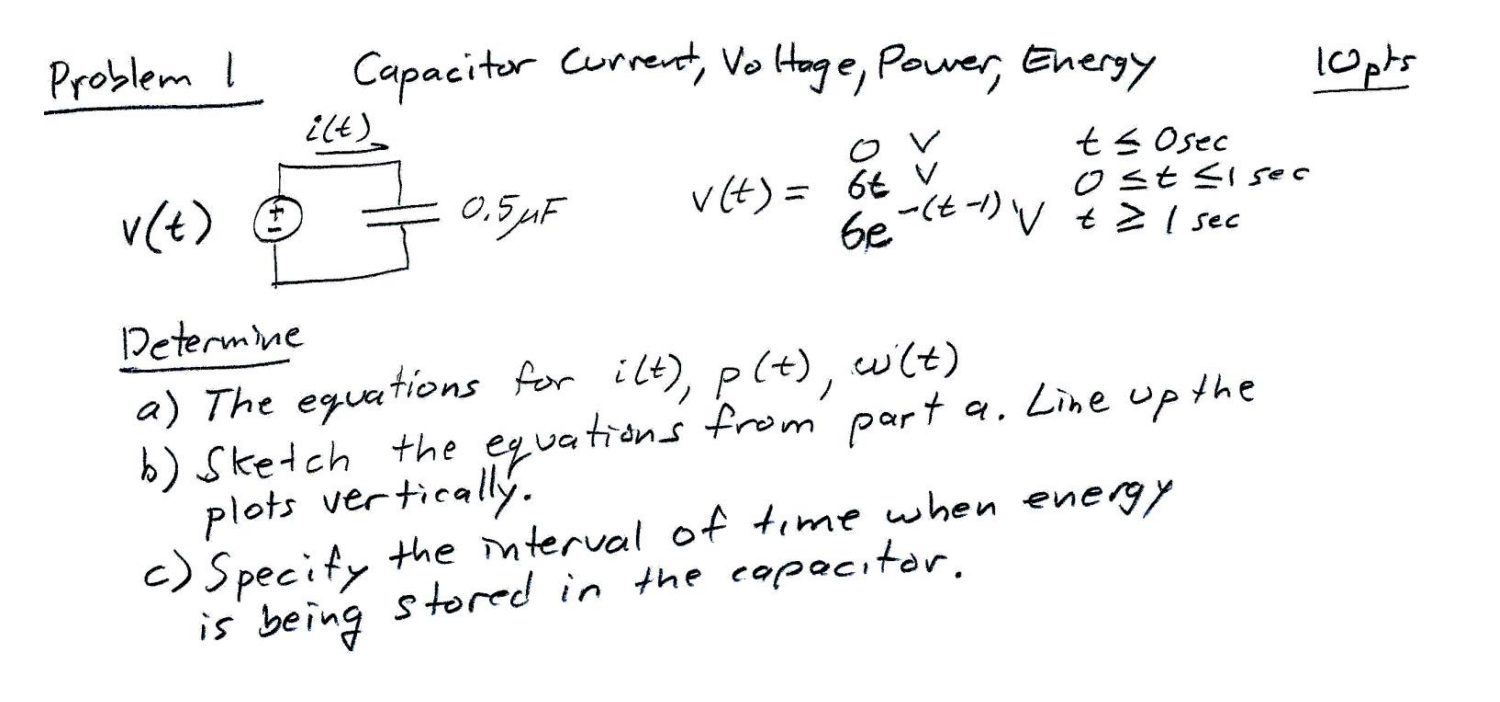 Problem 1 Capacitor Current, Voltage, Power, Energy 10pts
i(t)
v(t) + - 0.5μF v(t) = 0 V t ≤ 0sec
6t V 0 ≤ t ≤ 1 sec
6e^-(t-1) V t ≥ 1 sec
Determine
a) The equations for i(t), p(t), w(t)
b) Sketch the equations from part a. Line up the
plots vertically.
c) Specify the interval of time when energy
is being stored in the capacitor.